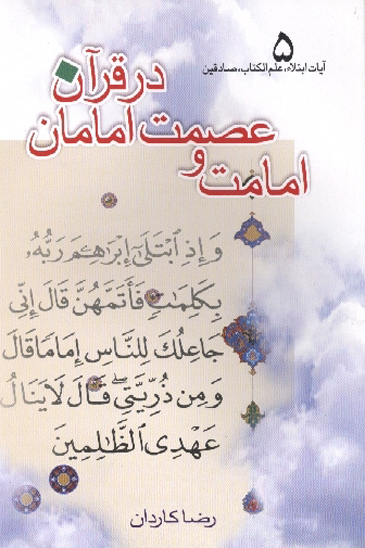 ۵
آیات ابتلاء، علم الکتاب، صادقین
امامت و عصمت امامان در قرآن
وَإِذِ ٱبْتَلَىٰٓ إِبْرَٰهِـۧمَ رَبُّهُۥ
بِكَلِمَٰتٍ فَأَتَمَّهُنَّ قَالَ إِنِّى
جَاعِلُكَ لِلنَّاسِ إِمَامًا قَالَ
وَمِن ذُرِّيَّتِى قَالَ لَا يَنَالُ
عَهْدِى ٱلظَّٰلِمِينَ
رضا کاردان